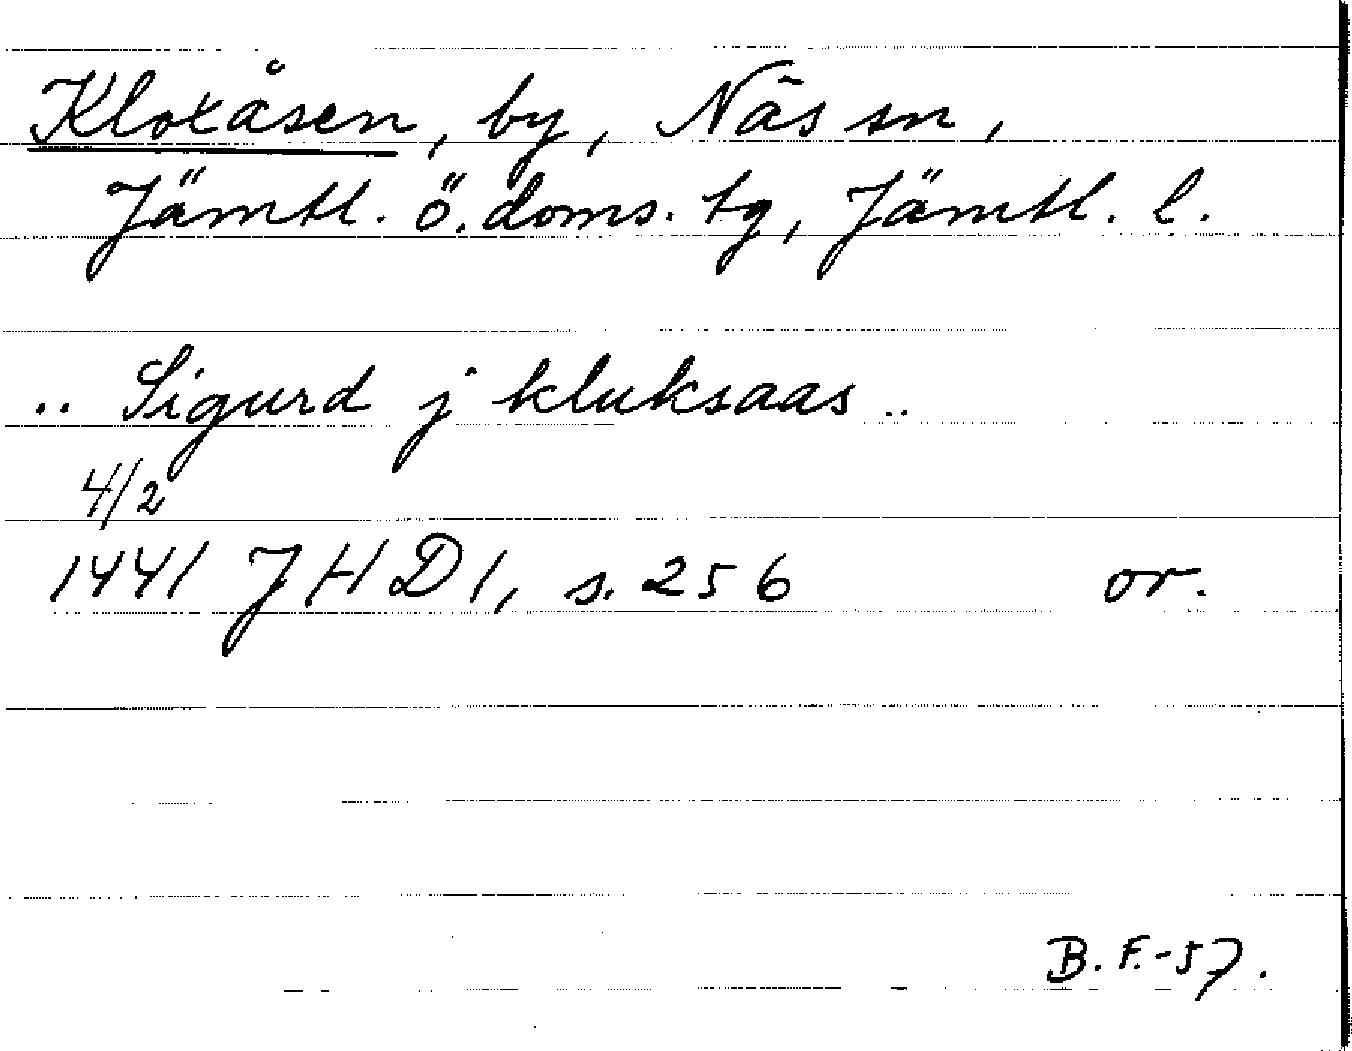 Kloxåsen, by, Näs sn,
Jämtl. ö. doms. tg, Jämtl. l.
.. Sigurd j kluksaas ..
4/2
1441 JHD 1, s. 256 or.
B. F.-57.